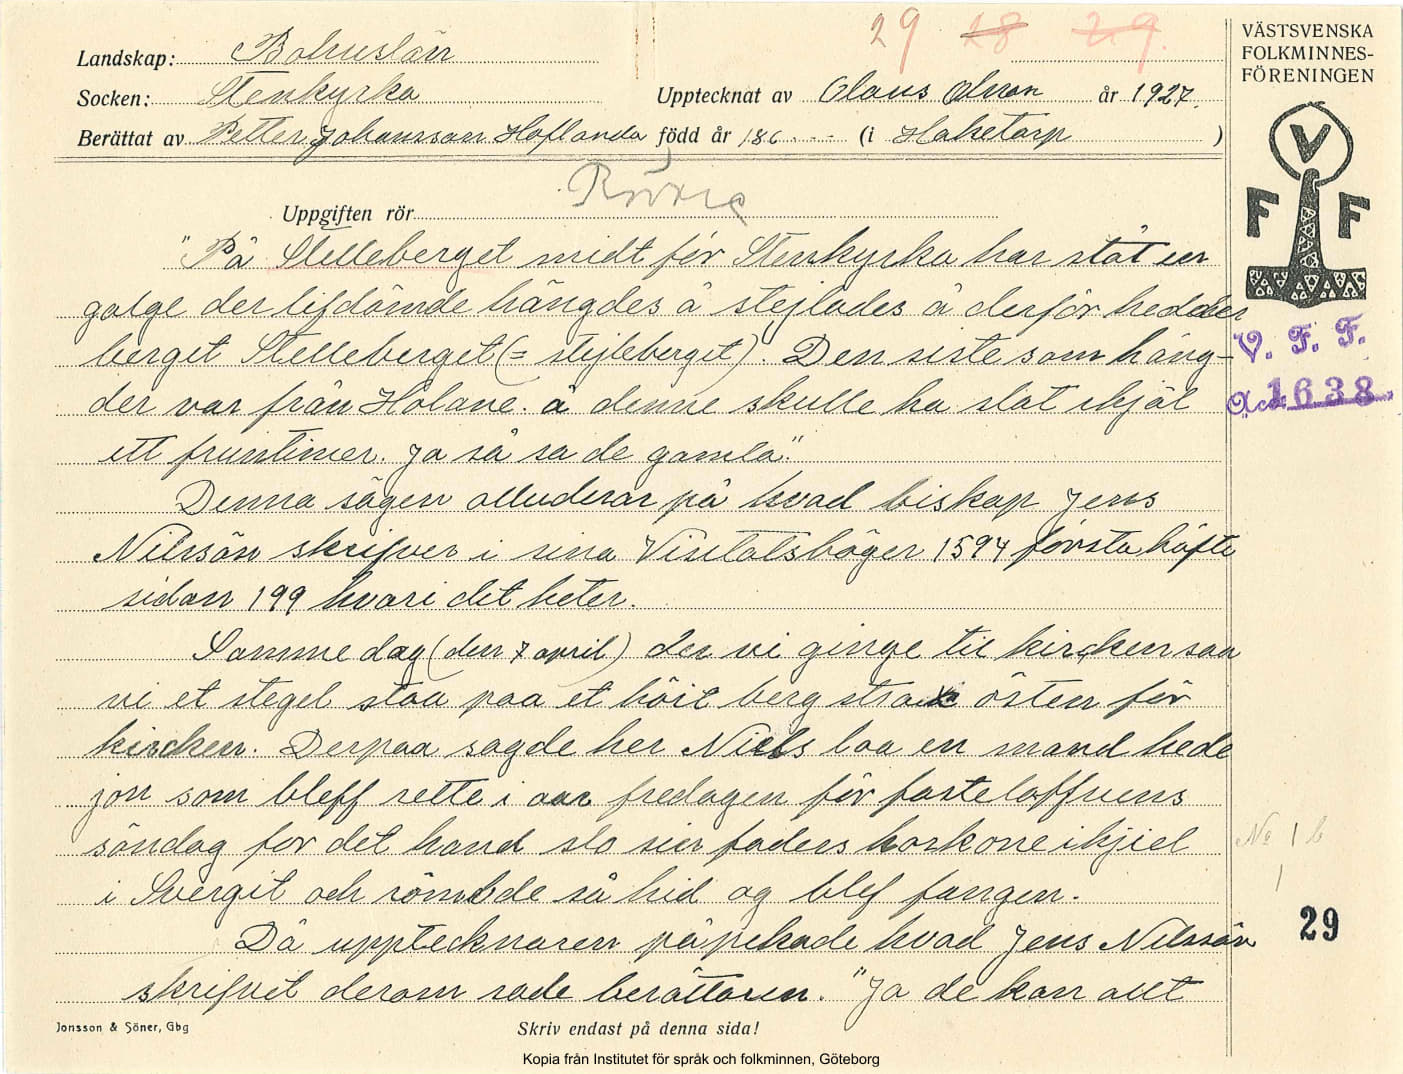 29 28 29.
Landskap: Bohuslän
Socken: Stenkyrka
Upptecknat av Olaus Olsson år 1927.
Berättat av Petter Johansson Hoflanda född år 186 (i Haketorp)
Uppgiften rör
"På Stelleberget midt för Stenkyrka har ståt en
galge der lifdömde hängdes å stejlades å derför hedder
berget Stelleberget (= stejleberget). Den siste som häng-
der var från Holane. å denne skulle ha slåt ihjäl
ett fruntimer. Ja så sa de gamla".
Denna sägen alluderar på hvad biskop Jens
Nilssön skrifver i sina Visitatsböger 1594 första häfte
sidan 199 hvari det heter.
Samme dag (den 7 april) der vi ginge til kircken saa
vi et stegel staa paa et höit berg strax östen för
kircken. Derpaa sagde her Niels laa en mand hede
jon som bleff rette i aar fredagen för fastelaffuens
söndag for det hand slo sin faders kone ihjiel
i Svergit och römbde så hid og blef fangen.
Då upptecknaren påpekade hvad Jens Nilssön
skrifvit derom sade berättaren. "Ja de kan allt
VÄSTSVENSKA
FOLKMINNES-
FÖRENINGEN
V
F F
V. F. F.
Acc. 1638.
No 1 b
1
29
Jonsson & Söner, Gbg
Skriv endast på denna sida!
Kopia från Institutet för språk och folkminnen, Göteborg